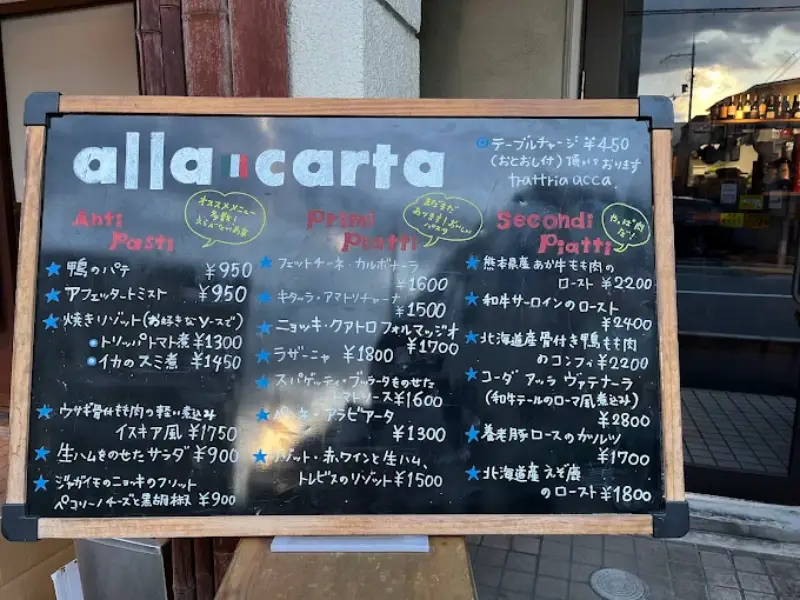 alla carta
テーブルチャージ ¥450
(おとおし付) 頂いております
trattria acca.
Anti
Pasti
オススメメニュー
多数!
★鴨のパテ ¥950
★アフェッタートミスト ¥950
★焼きリゾット(お好きなソースで)
・トリッパトマト煮 ¥1300
・イカのスミ煮 ¥1450
★ウサギ骨付もも肉の軽い煮込み
イスキア風 ¥1750
★生ハムをのせたサラダ ¥900
★ジャガイモのニョッキのフリット
ペコリーノチーズと黒胡椒 ¥900
Primi
Piatti
まだまだ
あります!おいしい
パスタ
★フェットチーネ・カルボナーラ
¥1600
★キタッラ・アマトリチャーナ
¥1500
★ニョッキ・クアトロフォルマッジオ
¥1700
★ラザーニャ ¥1800
★スパゲッティ・ブッラータをのせた
トマトソース ¥1600
★アラビアータ
¥1300
★リゾット・赤ワインと生ハム、
トレビスのリゾット ¥1500
Secondi
Piatti
やっぱ肉
だ!
★熊本県産あか牛もも肉の
ロースト ¥2200
★和牛サーロインのロースト
¥2400
★北海道産骨付き鴨もも肉
のコンフィ ¥2200
★コーダ アッラ ヴァテナーラ
(和牛テールのローマ風煮込み)
¥2800
★養老豚ロースのカツレツ
¥1700
★北海道産えぞ鹿
のロースト ¥1800